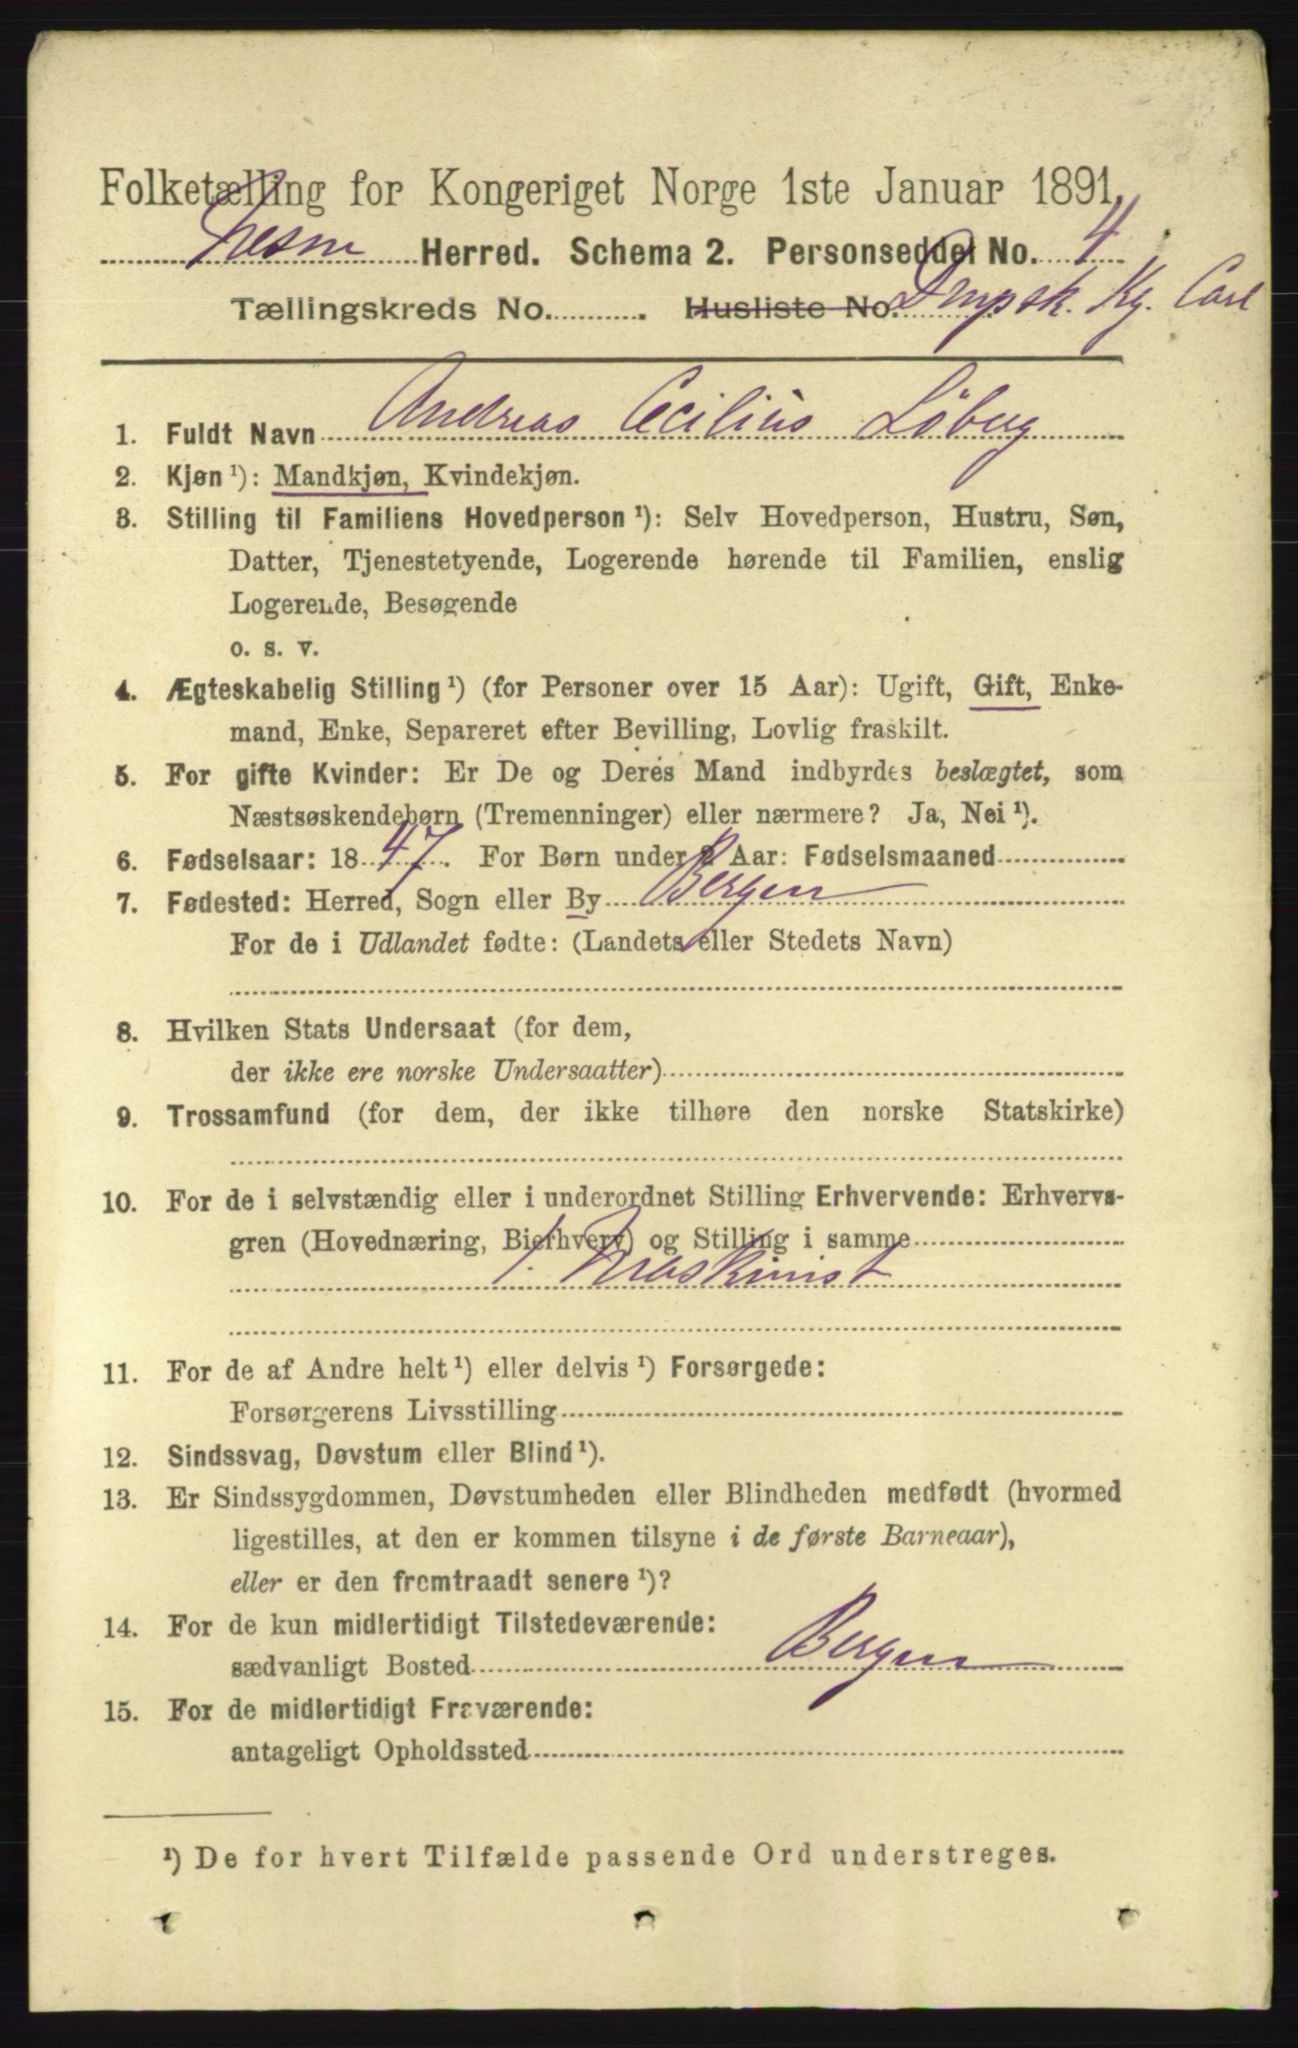 Folketælling for Kongeriget Norge 1ste Januar 1891.
Nesne Herred. Schema 2. Personseddel No. 4
Tællingskreds No. . Husliste No. Dmpsk. Kg. Carl
1. Fuldt Navn Andreas Cecilius Löberg
2. Kjøn ¹): Mandkjøn, Kvindekjøn.
3. Stilling til Familiens Hovedperson ¹): Selv Hovedperson, Hustru, Søn,
Datter, Tjenestetyende, Logerende hørende til Familien, enslig
Logerende, Besøgende
o. s. v.
4. Ægteskabelig Stilling ¹) (for Personer over 15 Aar): Ugift, Gift, Enke-
mand, Enke, Separeret efter Bevilling, Lovlig fraskilt.
5. For gifte Kvinder: Er De og Deres Mand indbyrdes beslægtet, som
Næstsøskendebørn (Tremenninger) eller nærmere? Ja, Nei ¹).
6. Fødselsaar: 1847. For Børn under 2 Aar: Fødselsmaaned
7. Fødested: Herred, Sogn eller By Bergen
For de i Udlandet fødte: (Landets eller Stedets Navn)
8. Hvilken Stats Undersaat (for dem,
der ikke ere norske Undersaatter)
9. Trossamfund (for dem, der ikke tilhøre den norske Statskirke)
10. For de i selvstændig eller i underordnet Stilling Erhvervende: Erhvervs-
gren (Hovednæring, Bierhverv) og Stilling i samme
1. Maskinist
11. For de af Andre helt ¹) eller delvis ¹) Forsørgede:
Forsørgerens Livsstilling
12. Sindssvag, Døvstum eller Blind ¹).
13. Er Sindssygdommen, Døvstumheden eller Blindheden medfødt (hvormed
ligestilles, at den er kommen tilsyne i de første Barneaar),
eller er den fremtraadt senere ¹)?
14. For de kun midlertidigt Tilstedeværende:
sædvanligt Bosted Bergen
15. For de midlertidigt Fraværende:
antageligt Opholdssted
¹) De for hvert Tilfælde passende Ord understreges.